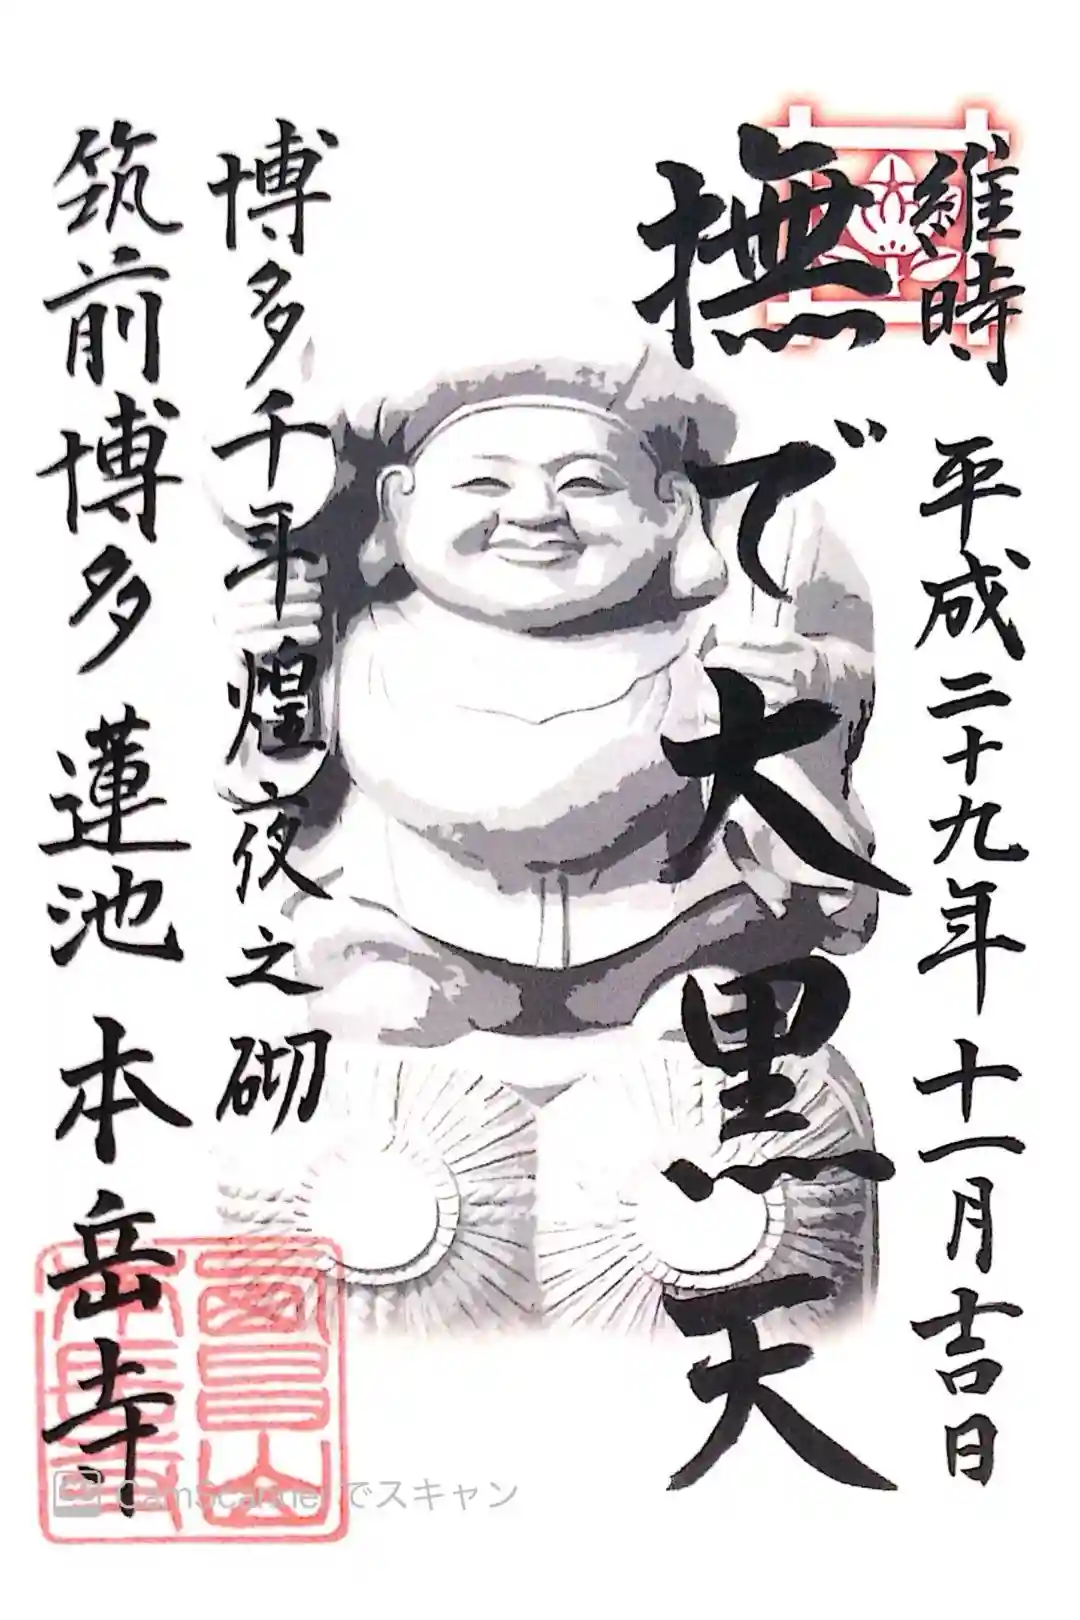 維時 平成二十九年十一月吉日
撫で大黒天
博多千年煌夜之砌
筑前博多 蓮池 本岳寺
CamScannerでスキャン